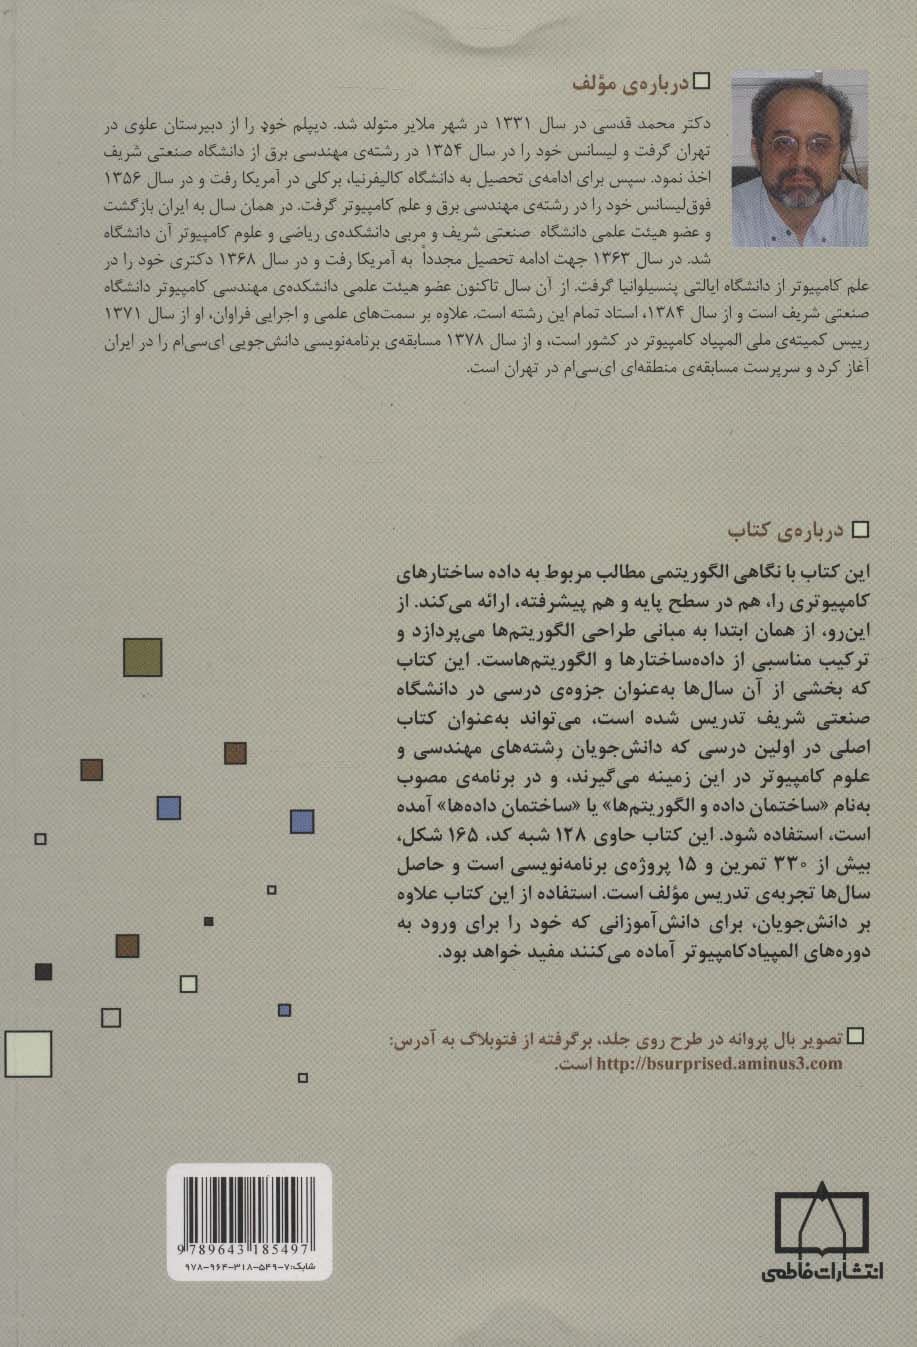 درباره‌ی مؤلف
دکتر محمد قدسی در سال ۱۳۳۱ در شهر ملایر متولد شد. دیپلم خود را از دبیرستان علوی در
تهران گرفت و لیسانس خود را در سال ۱۳۵۴ در رشته‌ی مهندسی برق از دانشگاه صنعتی شریف
اخذ نمود. سپس برای ادامه‌ی تحصیل به دانشگاه کالیفرنیا، برکلی در آمریکا رفت و در سال ۱۳۵۶
فوق‌لیسانس خود را در رشته‌ی مهندسی برق و علم کامپیوتر گرفت. در همان سال به ایران بازگشت
و عضو هیئت علمی دانشگاه صنعتی شریف و مربی دانشکده‌ی ریاضی و علوم کامپیوتر آن دانشگاه
شد. در سال ۱۳۶۳ جهت ادامه تحصیل مجدداً به آمریکا رفت و در سال ۱۳۶۸ دکتری خود را در
علم کامپیوتر از دانشگاه ایالتی پنسیلوانیا گرفت. از آن سال تاکنون عضو هیئت علمی دانشکده‌ی مهندسی کامپیوتر دانشگاه
صنعتی شریف است و از سال ۱۳۸۴، استاد تمام این رشته است. علاوه بر سمت‌های علمی و اجرایی فراوان، او از سال ۱۳۷۱
رییس کمیته‌ی ملی المپیاد کامپیوتر در کشور است، و از سال ۱۳۷۸ مسابقه‌ی برنامه‌نویسی دانش‌جویی ای‌سی‌ام را در ایران
آغاز کرد و سرپرست مسابقه‌ی منطقه‌ای ای‌سی‌ام در تهران است.
درباره‌ی کتاب
این کتاب با نگاهی الگوریتمی مطالب مربوط به داده ساختارهای
کامپیوتری را، هم در سطح پایه و هم پیشرفته، ارائه می‌کند. از
این‌رو، از همان ابتدا به مبانی طراحی الگوریتم‌ها می‌پردازد و
ترکیب مناسبی از داده‌ساختارها و الگوریتم‌هاست. این کتاب
که بخشی از آن سال‌ها به‌عنوان جزوه‌ی درسی در دانشگاه
صنعتی شریف تدریس شده است، می‌تواند به‌عنوان کتاب
اصلی در اولین درسی که دانش‌جویان رشته‌های مهندسی و
علوم کامپیوتر در این زمینه می‌گیرند، و در برنامه‌ی مصوب
به‌نام «ساختمان داده و الگوریتم‌ها» یا «ساختمان داده‌ها» آمده
است، استفاده شود. این کتاب حاوی ۱۲۸ شبه کد، ۱۶۵ شکل،
بیش از ۳۳۰ تمرین و ۱۵ پروژه‌ی برنامه‌نویسی است و حاصل
سال‌ها تجربه‌ی تدریس مؤلف است. استفاده از این کتاب علاوه
بر دانش‌جویان، برای دانش‌آموزانی که خود را برای ورود به
دوره‌های المپیادکامپیوتر آماده می‌کنند مفید خواهد بود.
تصویر بال پروانه در طرح روی جلد، برگرفته از فتوبلاگ به آدرس:
http://bsurprised.aminus3.com است.
9 789643 185497
شابک: ۷-۵۴۹-۳۱۸-۹۶۴-۹۷۸
انتشارات فاطمی